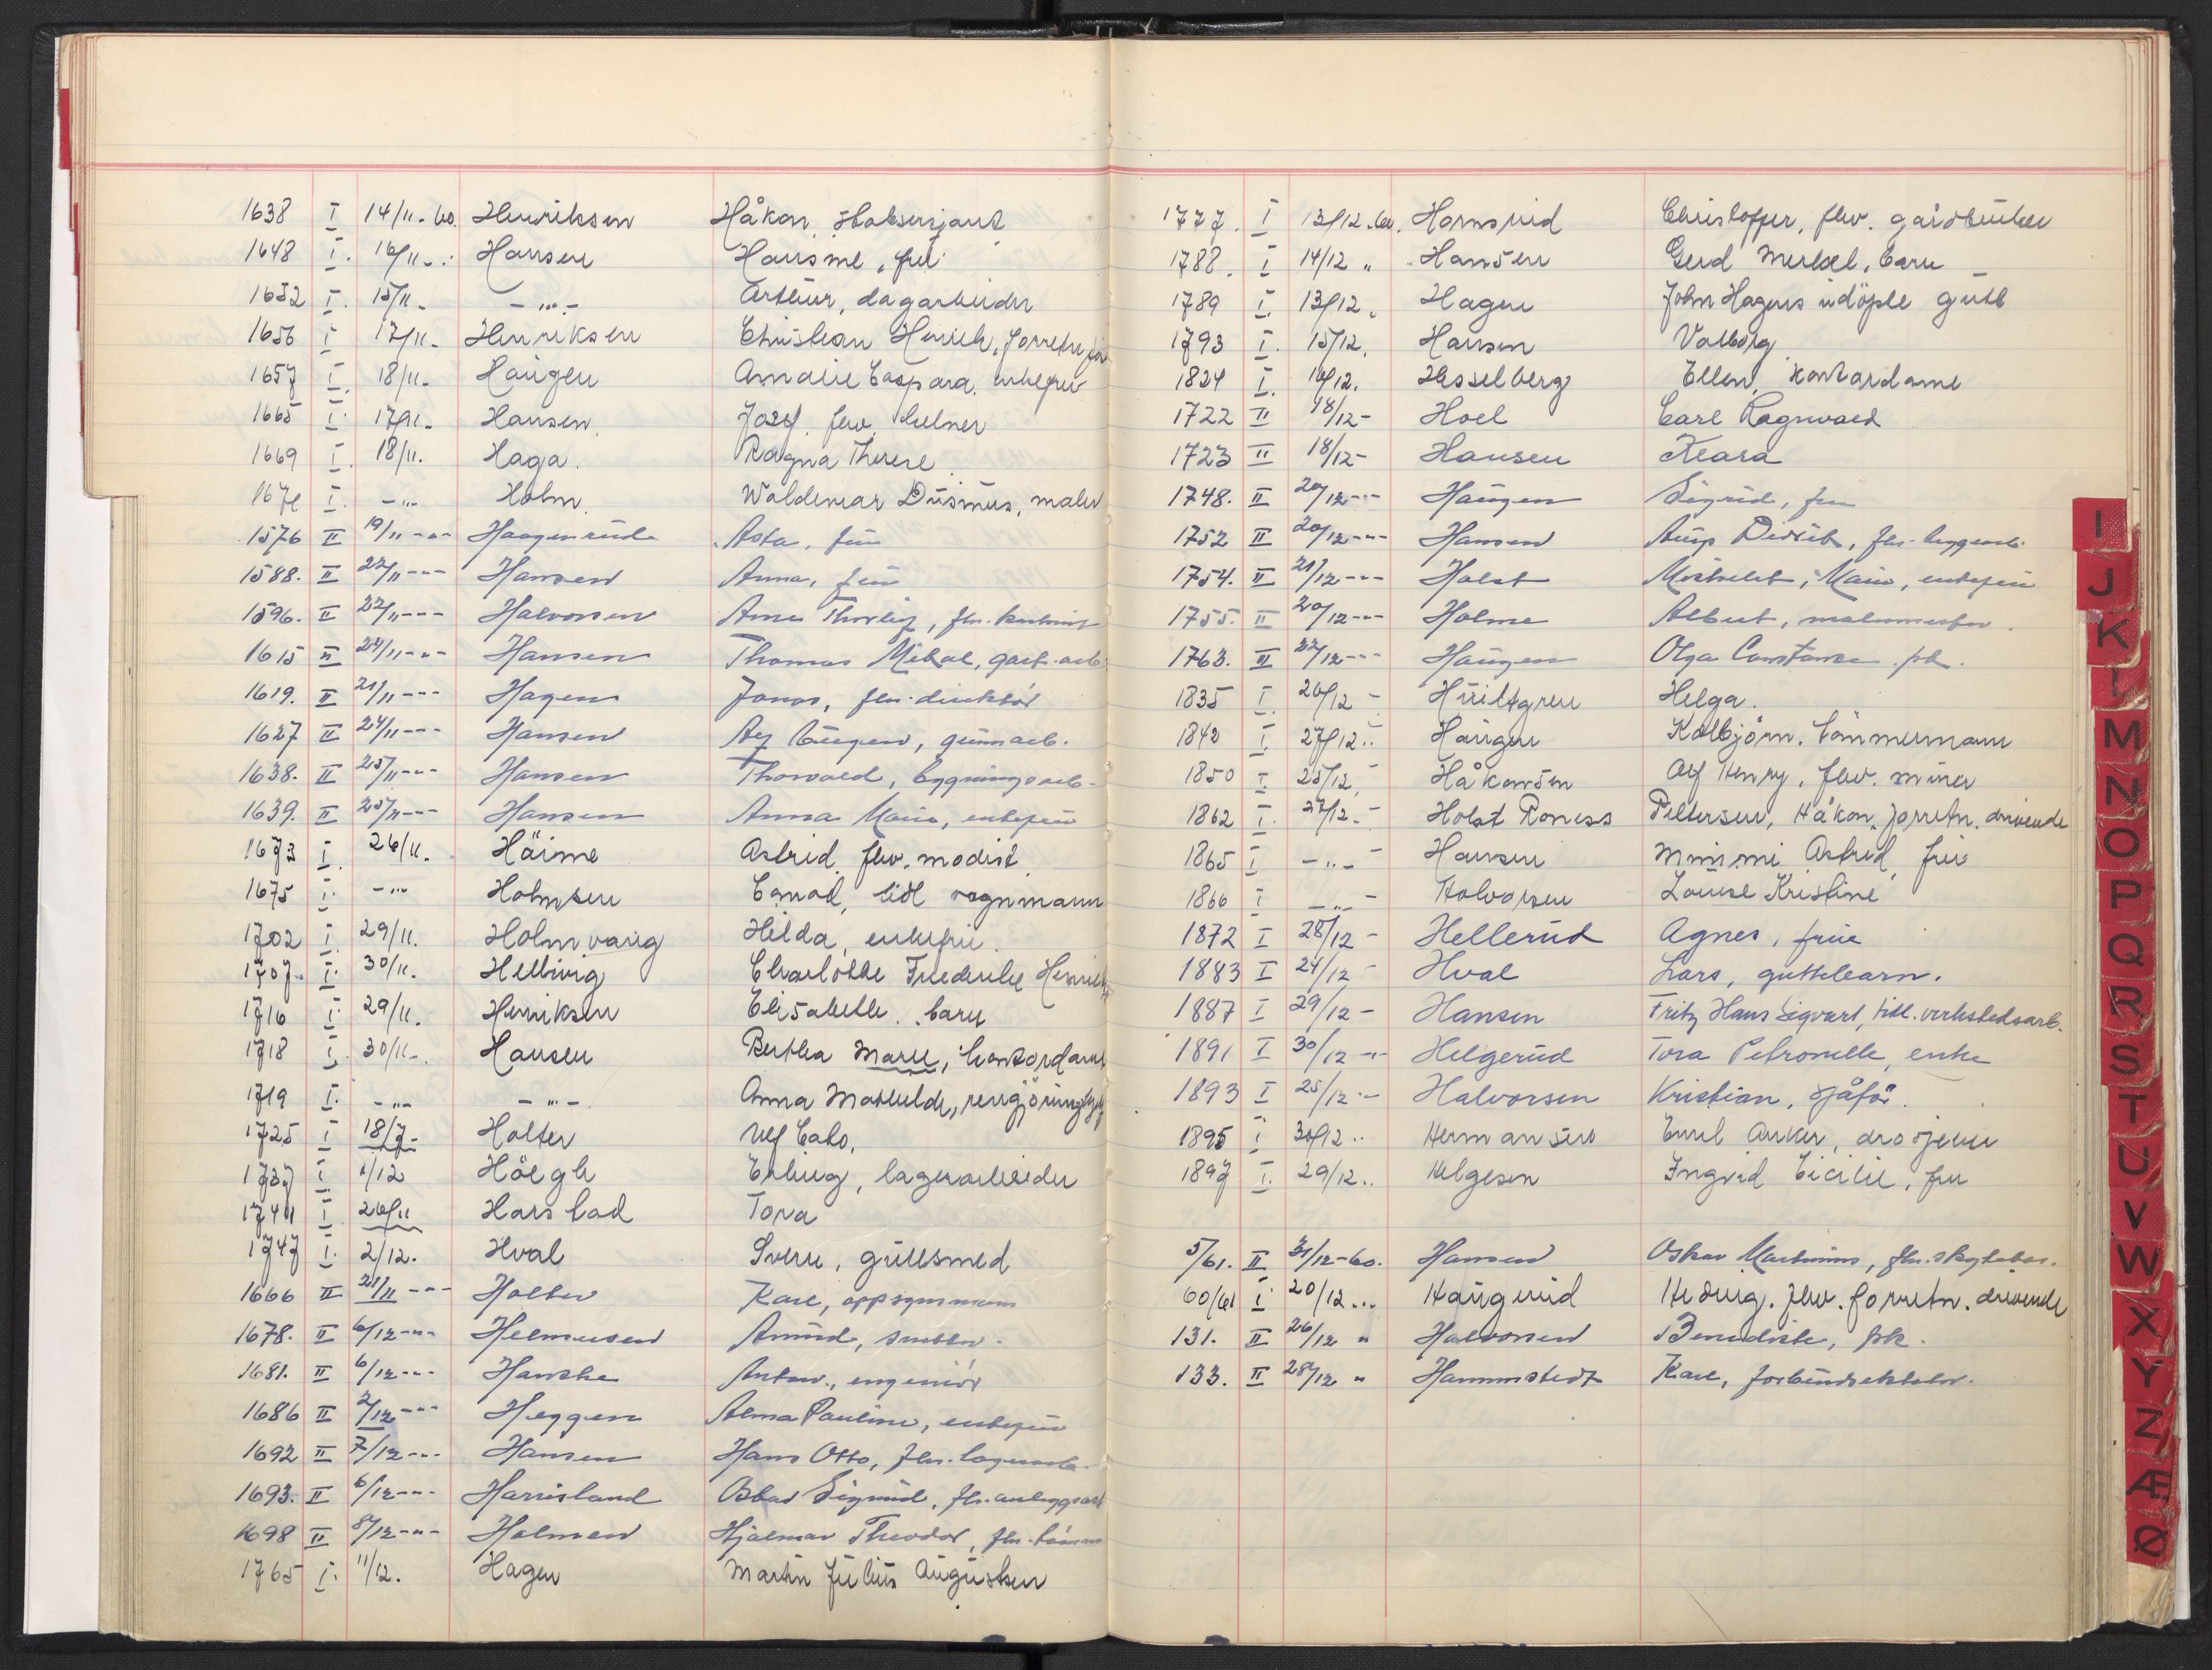 1638 I 14/11-60. Henriksen Håkon
1648 I. 16/11- Hansen fru
1652 I. 15/11- -"- Arthur, dagarbeider
1656 I 17/11- Henriksen Christian Henrik,
1657 I. 18/11- Haugen Amalie Caspara, enkefru
1665 I. 17/11- Hansen. Josef, fhv.
1669 I. 18/11. Haga. Ragna Therese
1671 I. -"- Holm. Waldemar, maler
1576 II 19/11 -"- Haagenrud Asta, fru
1588. II 22/11 -"- Hansen Anna, fru
1596. II 22/11 -"- Halvorsen Arne Thorleif, fhv.
1615 II 24/11 -"- Hansen Thomas Mikal, gart.arb.
1619. II 21/11 -"- Hagen Jonas, fhv. direktør
1627 II 24/11 -"- Hansen gumarb.
1638. II 25/11 -"- Hansen Thorvald, bygningsarb.
1639. II 25/11 -"- Hansen Anna Marie, enkefru
1673 I. 26/11. Astrid, fhv. modist
1675 I. -"- Holmsen tidl. vognmann
1702 I. 29/11. Holmvang Hilda, enkefru.
1707. I. 30/11. Hellwig Charlotte Frederikke
1716 I. 29/11. Henriksen Elisabeth, barn
1718 I. 30/11-. Hansen Berthea Marie, kontordame
1719 I. -"- -"- Anna Mathilde,
1725 I 18/7- Holter Ulf Cato.
1737 I. 1/12 Höegh Erling, lagerarbeider
1741 I. 26/11 Harstad Tora
1747 I. 2/12. Hval Sverre, gullsmed
1666 II 21/11 -"- Holter Kare, oppsynsmann
1678. II 6/12 -"- Helmersen
1681. II 6/12 -"- Hanche Anton., engeniør
1686 II 2/12 -"- Heggen Alma Pauline, enkefru
1692 II 7/12 -"- Hansen Hans Otto, fhv. lagerarb.
1693. II 6/12 -"- Harrisland Sigurd, fhv. anleggsarb
1698 II 8/12 -"- Holmen Hjalmar Theodor, fhv.
1765 I. 11/12. Hagen Martin Julius Augustsen
1777. I 13/12-60. Hornsrud Christoffer, fhv. gårdbruker
1788. I 14/12 " Hansen Gerd Merkel, barn
1789 I. 13/12 " Hagen John Hagens udøpte gutt
1793 I. 15/12. Hansen Valborg
1824 I. 16/12. Hesselberg Ellen, kontordame
1722 II 18/12- Hoel Carl Ragnvald
1723 II 18/12- Hansen Klara
1748. II 20/12 -"- Haugen Sigrid, fru
1752 II 20/12 -"- Hansen Didrik, fhv.
1754. II 21/12 -"- Holst Marie, enkefru
1755. II 20/12 -"- Holme Albert, malermester.
1763. II 22/12 -"- Haugen Olga Constance. frk.
1835 I. 26/12 - Hultgren Helga.
1842 I. 27/12 .. Haugen Kolbjørn, tömmermann
1850 I. 25/12. Håkonsen Alf Henry, fhv. murer
1862 I. 27/12.- Holst Roness Pettersen, Håkon, forretn. drivende
1865 I -"- Hansen Mimmi Astrid, fru
1866 I -"- Halvorsen Louise Kristine
1872 I 28/12 - Hellerud Agnes, frue
1883 I 24/12 - Hval Lars, guttebarn.
1887 I 29/12 - Hansen Fritz Hans Sigvart, tidl. verkstedsarb.
1891 I 30/12 -"- Helgerud Tora Petronelle, enke
1893 I 25/12 -"- Halvorsen Kristian, sjåför.
1895 I 30/12 .. Hermansen Emil Anker, drosjeeier
1897 I. 29/12 .. Helgesen Ingrid Cicilie, fru
5/61. II 31/12-60. Hansen Oskar Martinius, fhv.
60/61 I 20/12 ... Haugerud Hedvig. fhv. forretn. drivende
131. II 26/12 " Halvorsen Benedikte, frk.
133. II 28/12 " Hammstedt Kare, forbundsekretær.
I
J
K
L
M
N
O
P
Q
R
S
T
U
V
W
X
Y
Z
Æ
Ø